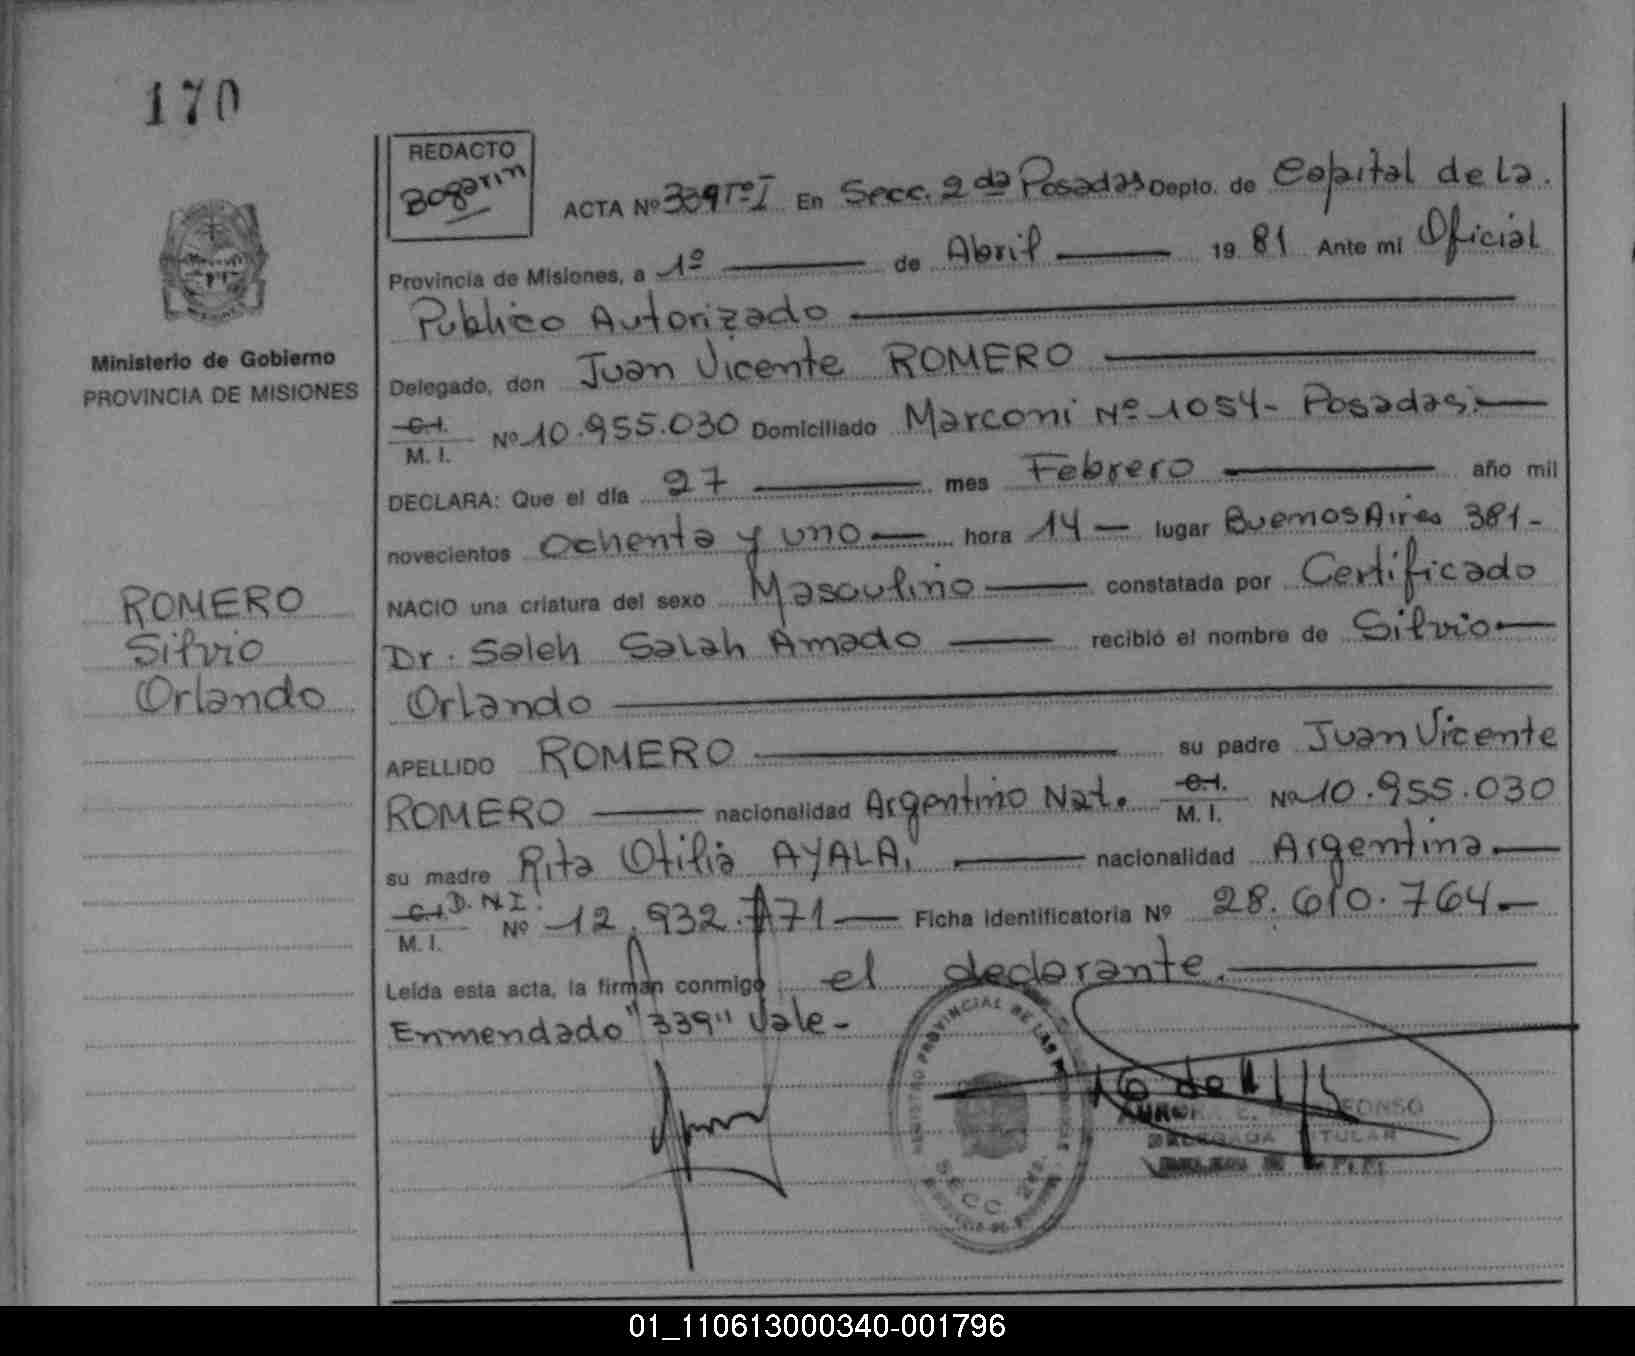 170
REDACTO
Bogarin
ACTA Nº 339 Tº I En Secc. 2da Posadas Depto. de Capital de La.
Provincia de Misiones, a 1º de Abril 1981 Ante mi Oficial
Publico Autorizado
Ministerio de Gobierno
PROVINCIA DE MISIONES
Delegado, don Juan Vicente ROMERO
C.I. M. I. Nº 10.955.030 Domiciliado Marconi Nº 1054- Posadas.
DECLARA: Que el día 27 mes Febrero año mil
novecientos Ochenta y uno hora 14 lugar Buenos Aires 381-
NACIO una criatura del sexo Masculino constatada por Certificado
Dr. Saleh Salah Amado recibió el nombre de Silvio
Orlando
ROMERO
Silvio
Orlando
APELLIDO ROMERO su padre Juan Vicente
ROMERO nacionalidad Argentino Nat. C.I. M. I. Nº 10.955.030
su madre Rita Otilia AYALA. nacionalidad Argentina.
C.I. D.N.I. M. I. Nº 12.932.771 Ficha identificatoria Nº 28.610.764
Leída esta acta, la firman conmigo el declarante.
Enmendado "339" Vale-
REGISTRO PROVINCIAL DE LAS PERSONAS
SECC. 2da.
DELEGADA TITULAR
01_110613000340-001796